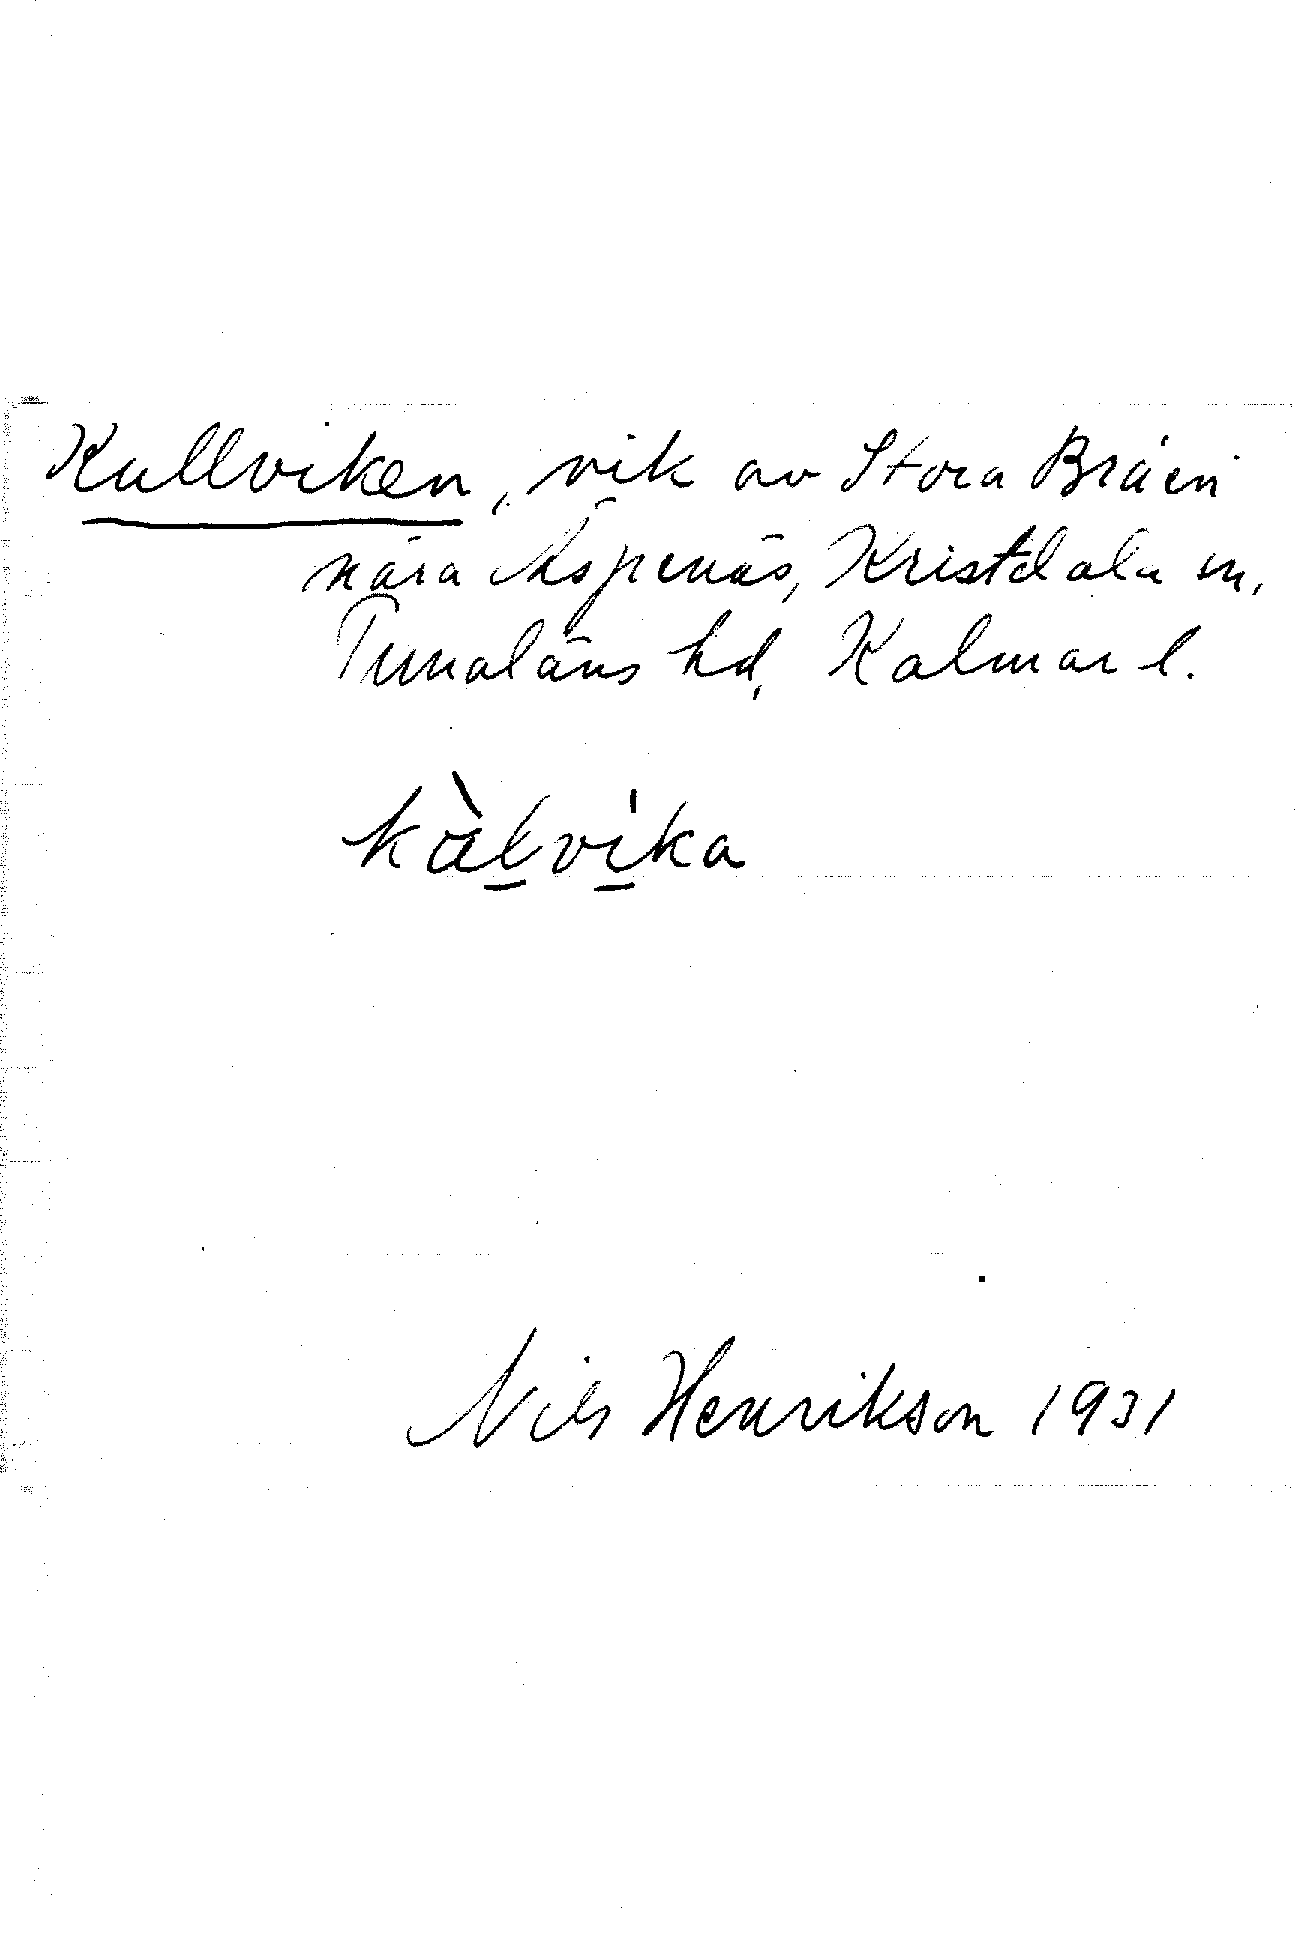 Kullviken, vik av Stora Bråen
nära Äspenäs, Kristdala sn,
Tunaläns hd, Kalmar l.
kàlvi̱ka
Nils Henrikson 1931